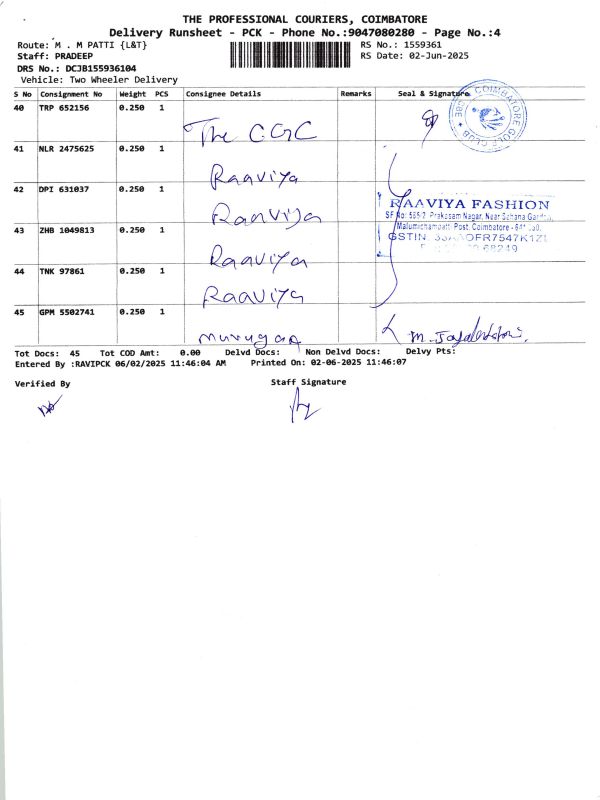 THE PROFESSIONAL COURIERS, COIMBATORE
Delivery Runsheet - PCK - Phone No.:9047080280 - Page No.:4
Route: M . M PATTI {L&T} RS No.: 1559361
Staff: PRADEEP RS Date: 02-Jun-2025
DRS No.: DCJB155936104
Vehicle: Two Wheeler Delivery
S No Consignment No Weight PCS Consignee Details Remarks Seal & Signature
40 TRP 652156 0.250 1 The CGC
COIMBATORE GOLF CLUB
41 NLR 2475625 0.250 1 Raaviya
42 DPI 631037 0.250 1 Raaviya
RAAVIYA FASHION
SF No: 565/2, Prakasam Nagar, Near Sahana Garden,
Malumichampatti Post, Coimbatore - 641 050.
GSTIN: 33AAOFR7547K1Z
68249
43 ZHB 1049813 0.250 1 Raaviya
44 TNK 97861 0.250 1 Raaviya
45 GPM 5502741 0.250 1 murugan M. Jayalakshmi
Tot Docs: 45 Tot COD Amt: 0.00 Delvd Docs: Non Delvd Docs: Delvy Pts:
Entered By :RAVIPCK 06/02/2025 11:46:04 AM Printed On: 02-06-2025 11:46:07
Verified By Staff Signature